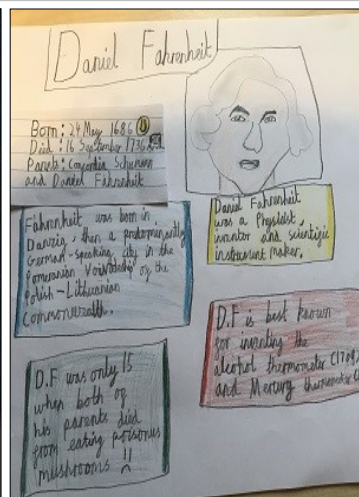 Daniel Fahrenheit
Born: 24 May 1686
Died: 16 September 1736
Parents: Concordia Schumann
and Daniel Fahrenheit
Daniel Fahrenheit
was a Physicist,
inventor and scientific
instrument maker.
Fahrenheit was born in
Danzig, then a predominantly
German-speaking city in the
Pomeranian Voivodeship of the
Polish-Lithuanian
Commonwealth.
D.F is best known
for inventing the
alcohol thermometer (1709)
and Mercury thermometer
D.F was only 15
when both of
his parents died
from eating poisonus
mushrooms !!